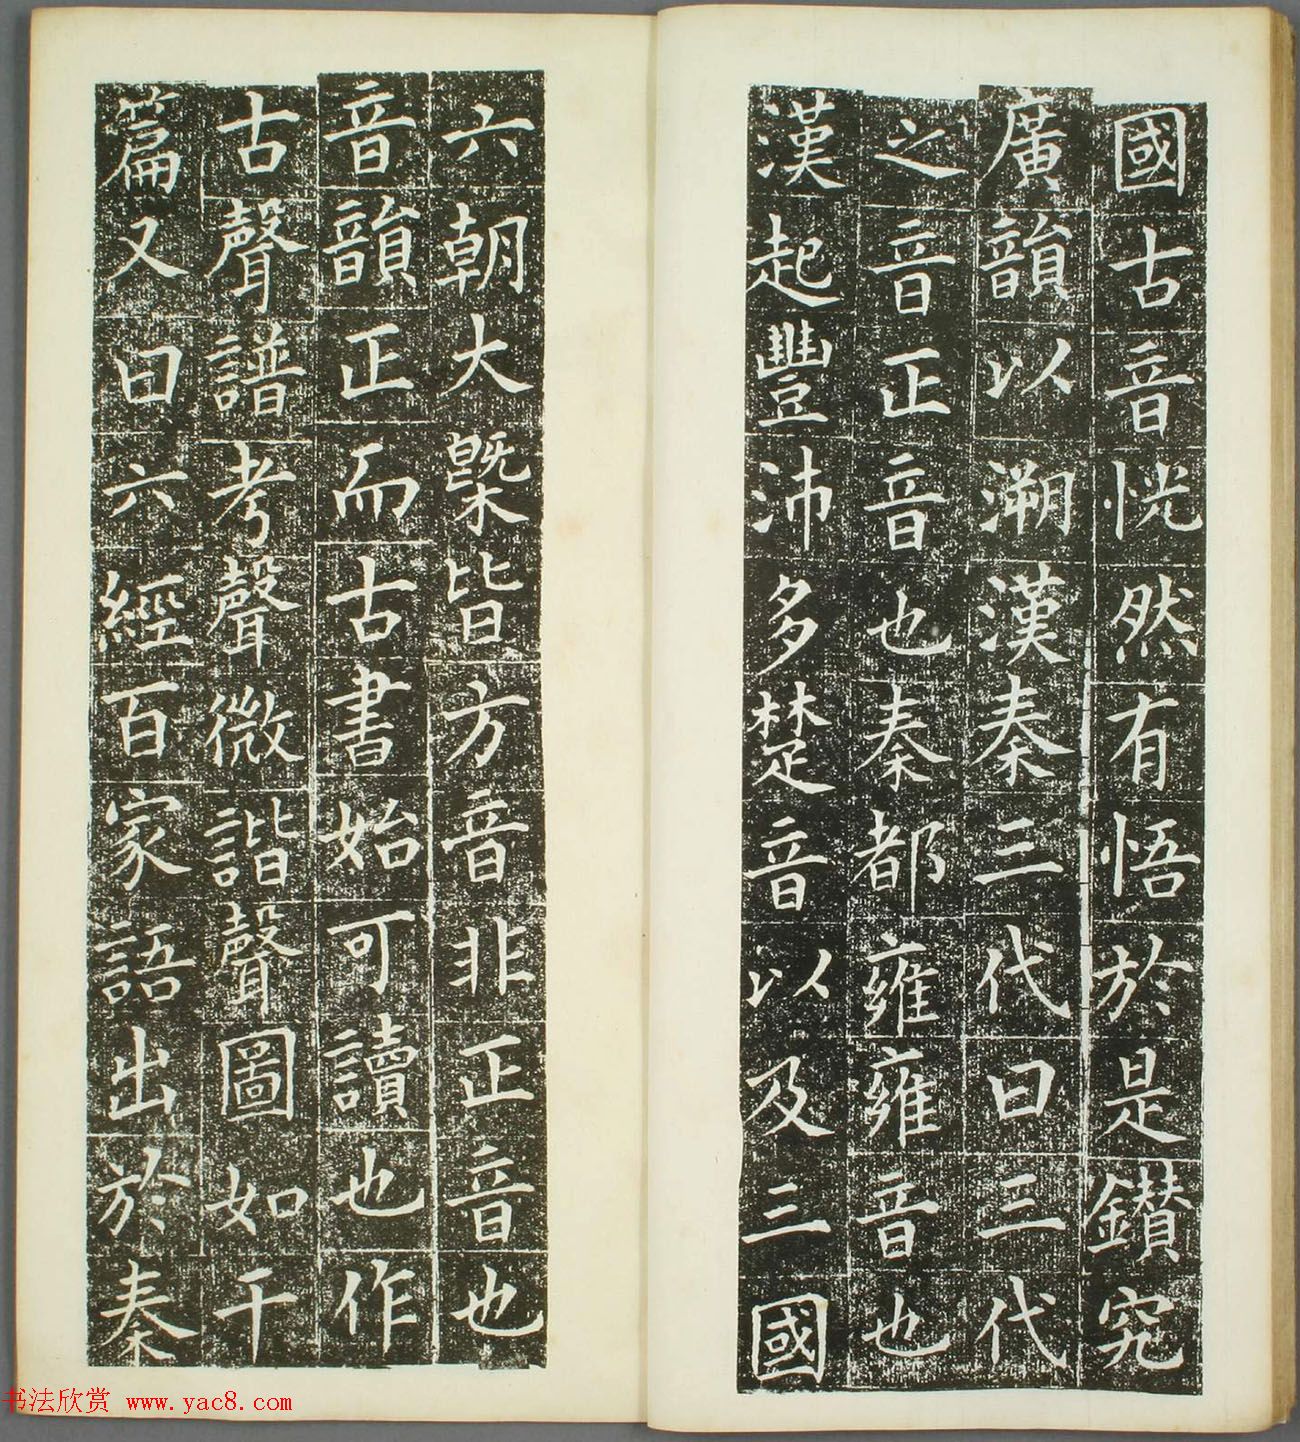 國古音恍然有悟於是鑚究
廣韻以溯漢秦三代曰三代
之音正音也秦都雍雍音也
漢起豐沛多楚音以及三國
六朝大槩皆方音非正音也
音韻正而古書始可讀也作
古聲譜考聲微諧聲圖如干
篇又曰六經百家語出於秦
书法欣赏 www.yac8.com